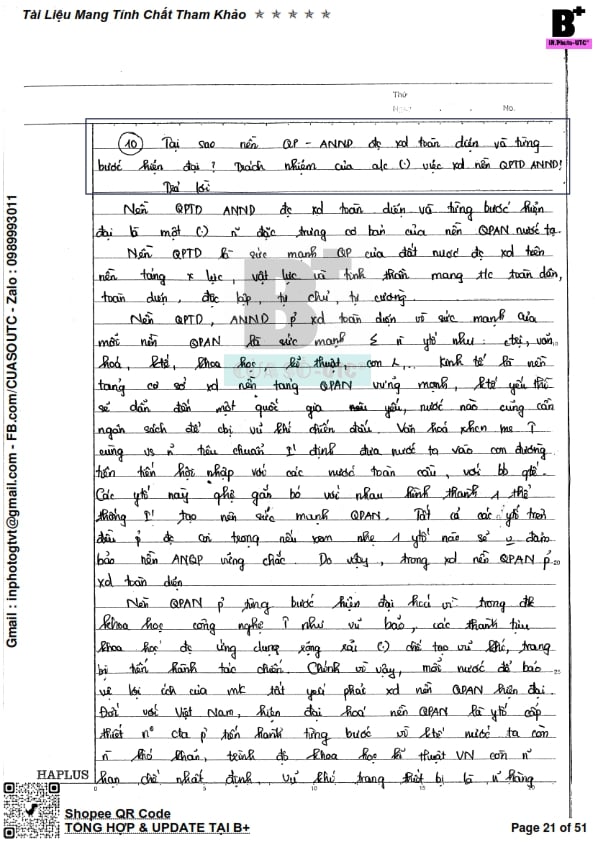 Tài Liệu Mang Tính Chất Tham Khảo ★ ★ ★ ★ ★
B+
IN.Photo-UTC
Thứ
No.
10 Tại sao nền QP - ANND đc xd toàn diện và từng
bước hiện đại ? Trách nhiệm của a/c (.) việc xd nền QPTD ANND!
Trả lời
Nền QPTD ANND đc xd toàn diến và từng bước hiện
đại là một (.) n đặc trưng cơ bản của nền QPAN nước ta.
Nền QPTD là sức mạnh QP của đất nước đc xd trên
nền tảng x lực, vật lực và tinh thần mang t/c toàn dân,
toàn diện, độc lập, tự chủ, tự cường.
Nền QPTD, ANND p xd toàn diện vì sức mạnh của
mỗi nền QPAN là sức mạnh Σ n ytố như : ctrị, văn
hoá, ktế, khoa học, kĩ thuật, con ... Kinh tế là nền
tảng cơ sở xd nền tảng QPAN vững mạnh, ktế yếu thì
sẽ dẫn đến một quốc gia yếu, nước nào cũng cần
ngân sách để chị vũ khí chiến đấu. Văn hoá
cùng vs n tiêu chuẩn I' định đưa nước ta vào con đường
tiên tiến hội nhập với các nước toàn cầu, với bb qtế.
Các ytố này ghệ gắn bó với nhau hình thành 1 thể
thống I' tạo nên sức mạnh QPAN. Tất cả các ytố trên
đều p đc coi trọng nếu xem nhẹ 1 ytố nào sẽ đảm
bảo nền ANQP vững chắc. Do vậy, trong xd nền QPAN p
xd toàn diện
Nền QPAN p từng bước hiện đại hoá vì trong đk
khoa học công nghệ như vũ bão, các thành tựu
khoa học đc ứng dụng rộng rãi (.) chế tạo vũ khí, trang
bị tiến hành tác chiến. Chính vì vậy, mỗi nước để bảo
vệ lợi ích của mk tất yếu phải xd nền QPAN hiện đại.
Đối với Việt Nam, hiện đại hoá nền QPAN là ytố cấp
thiết n° cta p tiến hành từng bước vì ktế nước ta còn
n khó khăn, trình độ khoa học kĩ thuật VN còn n
hạn chế nhất định, vũ khí trang thiết bị là n hàng
HAPLUS
CUASO-UTC
Gmail : inphotogtvt@gmail.com - FB.com/CUASOUTC - Zalo : 0989993011
Shopee QR Code
TỔNG HỢP & UPDATE TẠI B+
Page 21 of 51